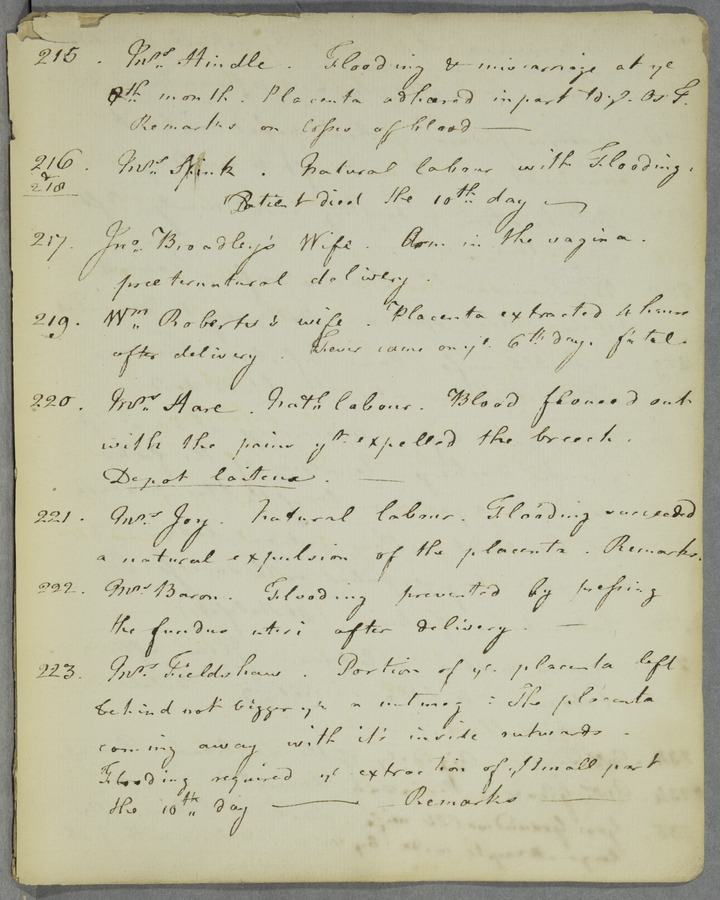 215. Mrs. Hindle. Flooding & miscarriage at ye
8th month. Placenta adhered in part
Remarks on loss of blood —
216. Mrs. Spink. Natural labour with Flooding.
218 Patient died the 10th day —
217. Jno. Broadley's Wife. Arm in the vagina.
præternatural delivery.
219. Wm. Roberts's wife. Placenta extracted 4 hours
after delivery. Fever came on ye. 6th day. fatal.
220. Mrs. Hare. Natl. labour. Blood flowed out
with the pains yt. expelled the breech.
Depot laiteux. —
221. Mrs. Joy. Natural labour. Flooding succeeded
a natural expulsion of the placenta. Remarks.
222. Mrs. Baron. Flooding prevented by pressing
the fundus uteri after delivery. —
223. Mrs. Fieldshaw. Portion of ye. placenta left
behind not bigger yn a nutmeg: The placenta
coming away with it's inside outwards.
Flooding required ye extraction of ys small part
the 10th day — Remarks —